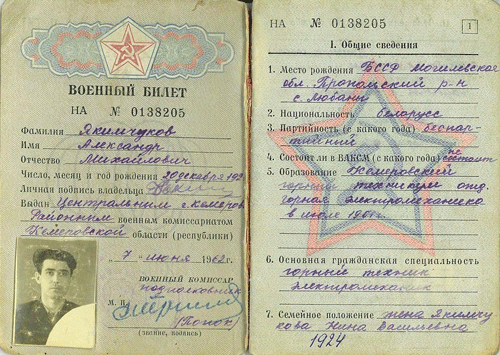 ВОЕННЫЙ БИЛЕТ
НА № 0138205
Фамилия Якимчуков
Имя Александр
Отчество Михайлович
Число, месяц и год рождения 20 декабря 192
Личная подпись владельца
Выдан Центральным г. Кемерово
Районным военным комиссариатом
Кемеровской области (республики)
7 июня 1962 г.
ВОЕННЫЙ КОМИССАР
подполковник
М. П.
(Попок)
(звание, подпись)
НА № 0138205
1
I. Общие сведения
1. Место рождения БССР Могилевская
обл. Пропойский р-н
с. Любаны
2. Национальность белорусс
3. Партийность (с какого года) беспар-
тийный
4. Состоял ли в ВЛКСМ (с какого года) не состоит
5. Образование Кемеровский
горный техникум отд.
горная электромеханика
в июле 1961г.
6. Основная гражданская специальность
горный техник
электромеханик
7. Семейное положение жена Якимчу
кова Нина Васильевна
1924